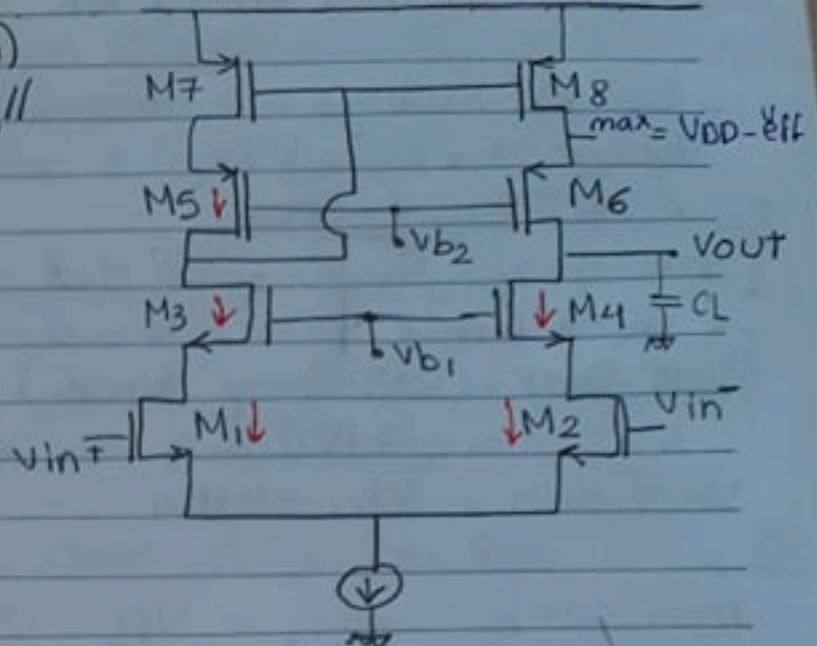 )
//
M7
M8
max= VDD-Veff
M5
M6
Vb2
VOUT
M3
M4
CL
Vb1
Vin+
M1
M2
Vin-